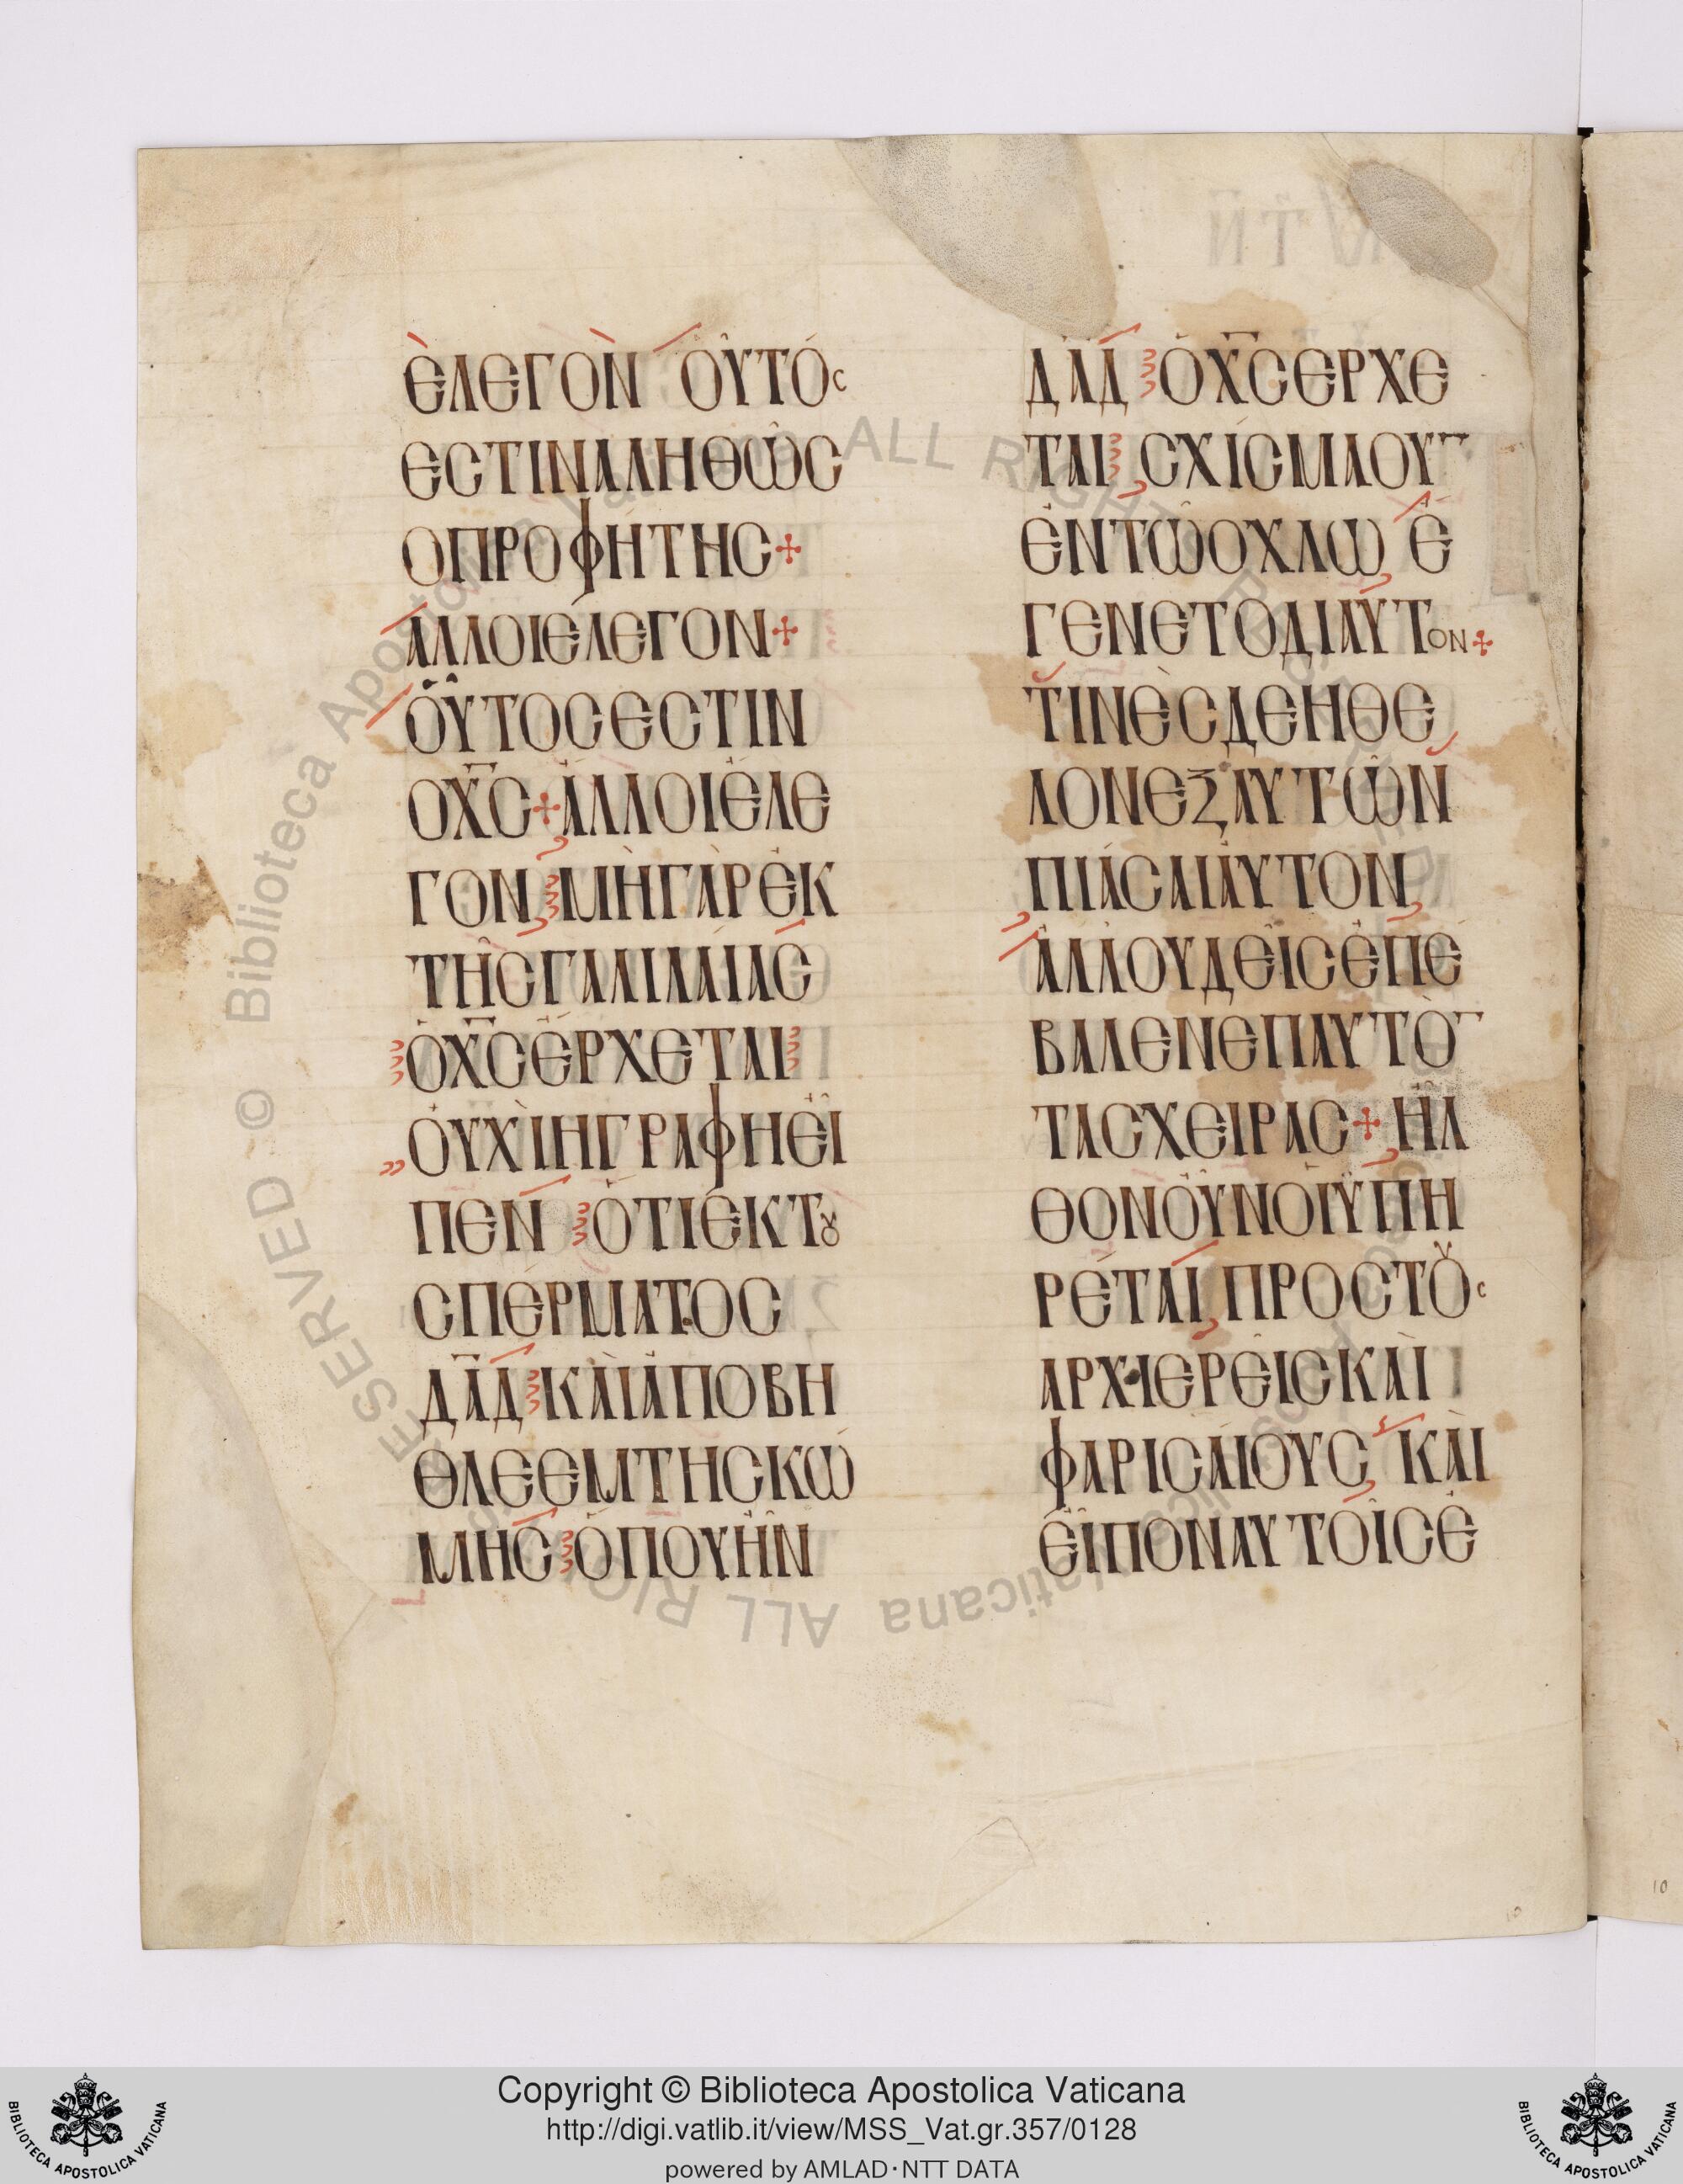 ἘΛΕΓΟΝ ΟΥ͂ΤΌC
ΕCΤΙΝΑΛΗΘΩ͂C
ΟΠΡΟΦΉΤΗC+
ἌΛΛΟΙἜΛΕΓΟΝ+
ΟὟΤΟCΕCΤΙΝ
ΟΧ̅C+ἌΛΛΟΙἜΛΕ
ΓΟΝ ΜῊΓᾺΡἘΚ
ΤΗ͂CΓΑΛΙΛΑΊΑC
ὉΧ̅CἜΡΧΕΤΑΙ
ΟΥΧῚΗΓΡΑΦΗΕἾ
ΠΕΝ ὍΤΙἘΚΤȣ
CΠΈΡΜΑΤΟC
ΔΑ̅Δ ΚΑῚἈΠΟΒΗ
ΘΛΕΕΜΤΗCΚΏ
ΜΗC ὍΠΟΥἮΝ
ΔΑ̅Δ ὉΧ̅CΕΡΧΕ
ΤΑΙ CΧΊCΜΑΟΥ̅
ἘΝΤΩ͂ΟΧΛΩ Ἐ
ΓΕΝΕΤΟΔΙΑΥΤΟΝ+
ΤΙΝῈCΔΕΗΘΕ
ΛΟΝΕΞΑΥΤΩ͂Ν
ΠΙΆCΑΙΑΥΤΟΝ
ἈΛΛΟΥΔΕῚCἘΠΈ
ΒΑΛΕΝΕΠΑΥΤῸ̅
ΤΑCΧΕΙΡΑC+ ἮΛ
ΘΟΝΟΥ̓͂ΝΟΙΫΠΗ
ΡΈΤΑΙ ΠΡΟCΤȢC
ΑΡΧΙΕΡΕΙ͂CΚΑῚ
ΦΑΡΙCΑΊΟΥC ΚΑῚ
ΕἾΠΟΝΑΥΤΟΙ͂CἘ
10
10
© Biblioteca Apostolica Vaticana ALL RIGHTS RESERVED
Copyright © Biblioteca Apostolica Vaticana
http://digi.vatlib.it/view/MSS_Vat.gr.357/0128
powered by AMLAD·NTT DATA
BIBLIOTECA APOSTOLICA VATICANA
BIBLIOTECA APOSTOLICA VATICANA